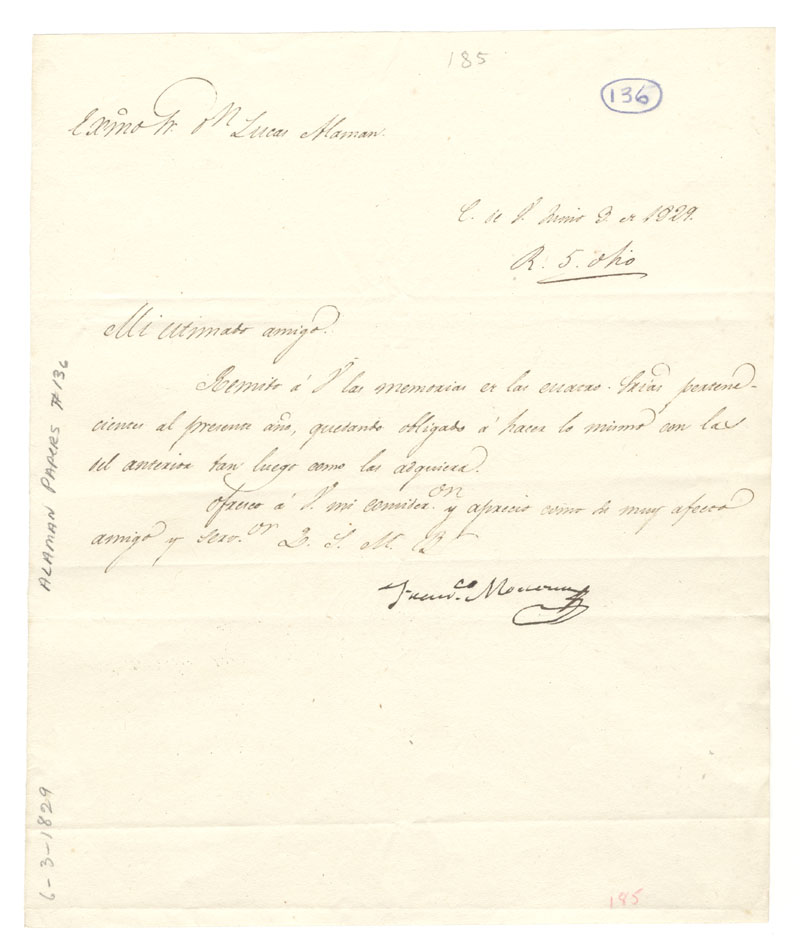 185
136
Exmo Sr. Dn Lucas Alaman.
C. de V. Junio 3 de 1829.
R. 5. dho
Mi estimado amigo.
Remito á V. las memorias de las cuatro Srias pertene-
cientes al presente año, quedando obligado á hacer lo mismo con las
del anterior tan luego como las adquiera.
Ofresco á V. mi consider.on y aprecio como su muy afecto
amigo y serv.or Q. S. M. B.
Franc.co
ALAMAN PAPERS #136
6-3-1829
185